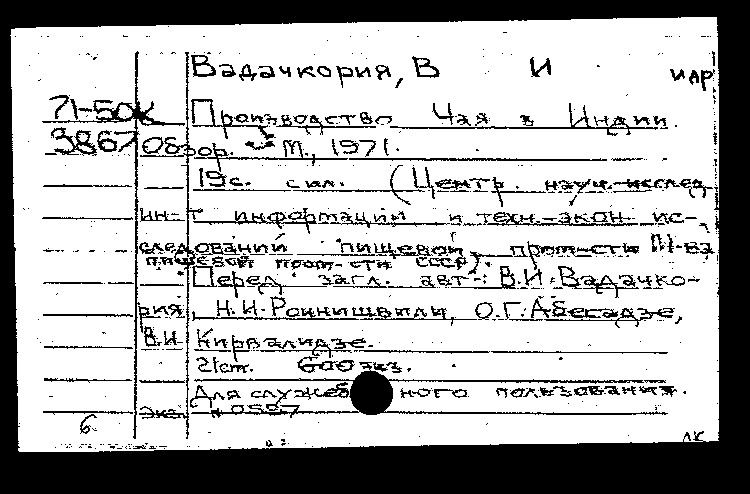 Вадачкория, В И
ИАР
71-50к Производство Чая в Индии.
3867 Обзор. М., 1971.
19с. с ил. (Центр. науч.-исслед.
ин-т информации и техн.-экон. ис-
следований пищевой пром-сти М-ва
пищевой пром-сти СССР).
Перед загл. авт.: В.И. Вадачко-
рия, Н.И. Роинишвили, О.Г. Абесадзе,
В.И. Кирвалидзе.
21см. 600 экз.
Для служебного пользования.
Экз. № 0557
6
ЛК